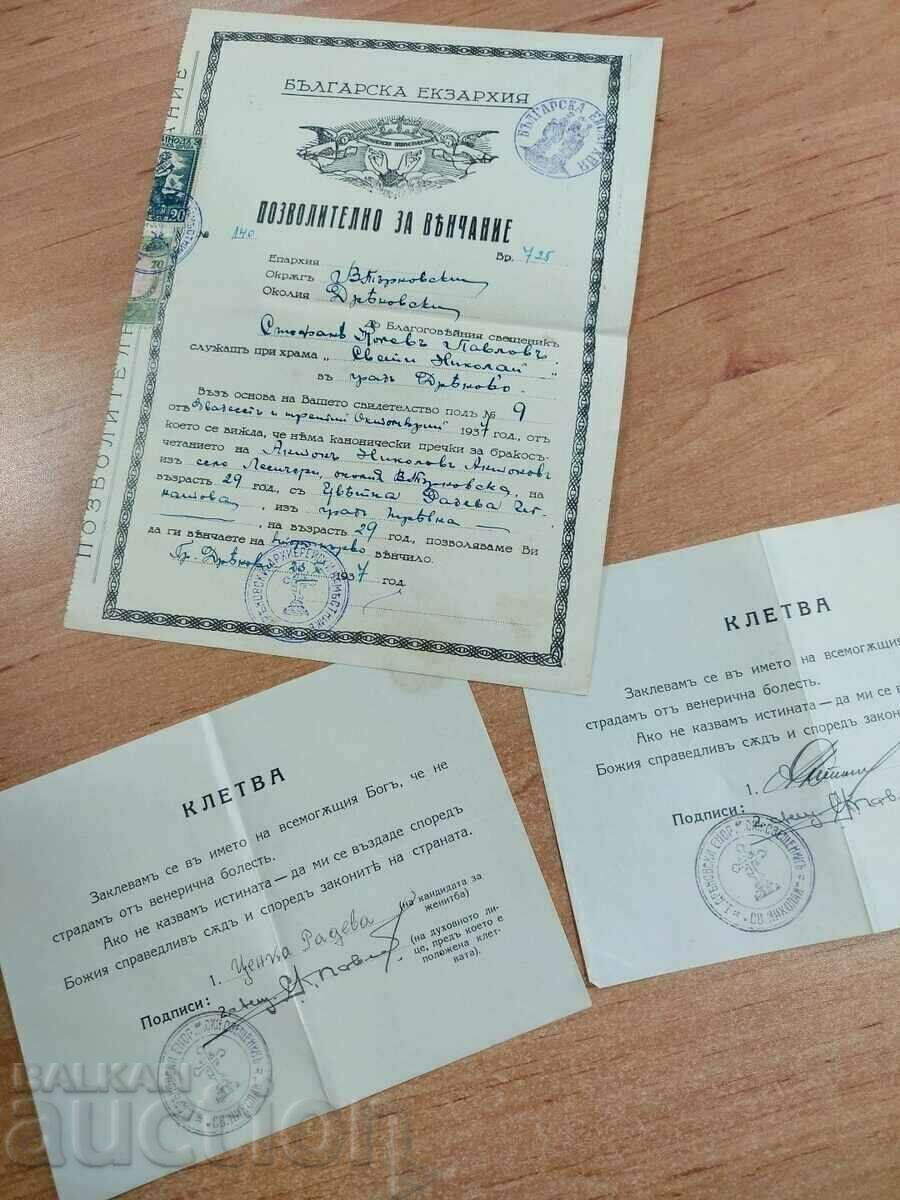 БЪЛГАРСКА ЕКЗАРХИЯ
БЪЛГАРСКА
ПОЗВОЛИТЕЛНО ЗА ВѢНЧАНИЕ
№ 140
Вр. 725
Епархия
Окрѫгъ В Търновски
Околия Дрѣновски
До Благоговѣйния свещеникъ
Стефанъ Павловъ
служащъ при храма „Свети Николай“
въ градъ Дрѣново
Възъ основа на Вашето свидетелство подъ № 9
отъ Двадесеть и третий Октомврий 1937 год., отъ
което се вижда, че нѣма канонически прѣчки за бракосъ-
четанието на Антонъ Николовъ Антоновъ
изъ село Лесичери, околия В Търновска, на
възрасть 29 год., съ Цвѣтка Радева
изъ градъ Трѣвна
на възрасть 29 год., позволяваме Ви
да ги вѣнчаете на първо вѣнчило.
Гр. Дрѣново 23 X 1937 год.
20
ПОЗВОЛИТЕЛ
КЛЕТВА
Заклевамъ се въ името на всемогѫщия Богъ, че не
страдамъ отъ венерична болесть.
Ако не казвамъ истината — да ми се въздаде споредъ
Божия справедливъ сѫдъ и споредъ законитѣ на страната.
1. Ценка Радева
(на кандидата за
женитба)
Подписи:
2.
(на духовното ли-
це, предъ което е
положена клет-
вата).
КЛЕТВА
Заклевамъ се въ името на всемогѫщия
страдамъ отъ венерична болесть.
Ако не казвамъ истината — да ми се в
Божия справедливъ сѫдъ и споредъ закони
1.
Подписи:
2.
BALKAN
auction